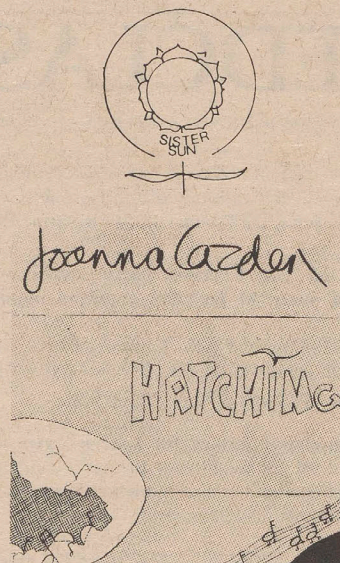 SISTER
SUN
Joanna Cazden
HATCHING